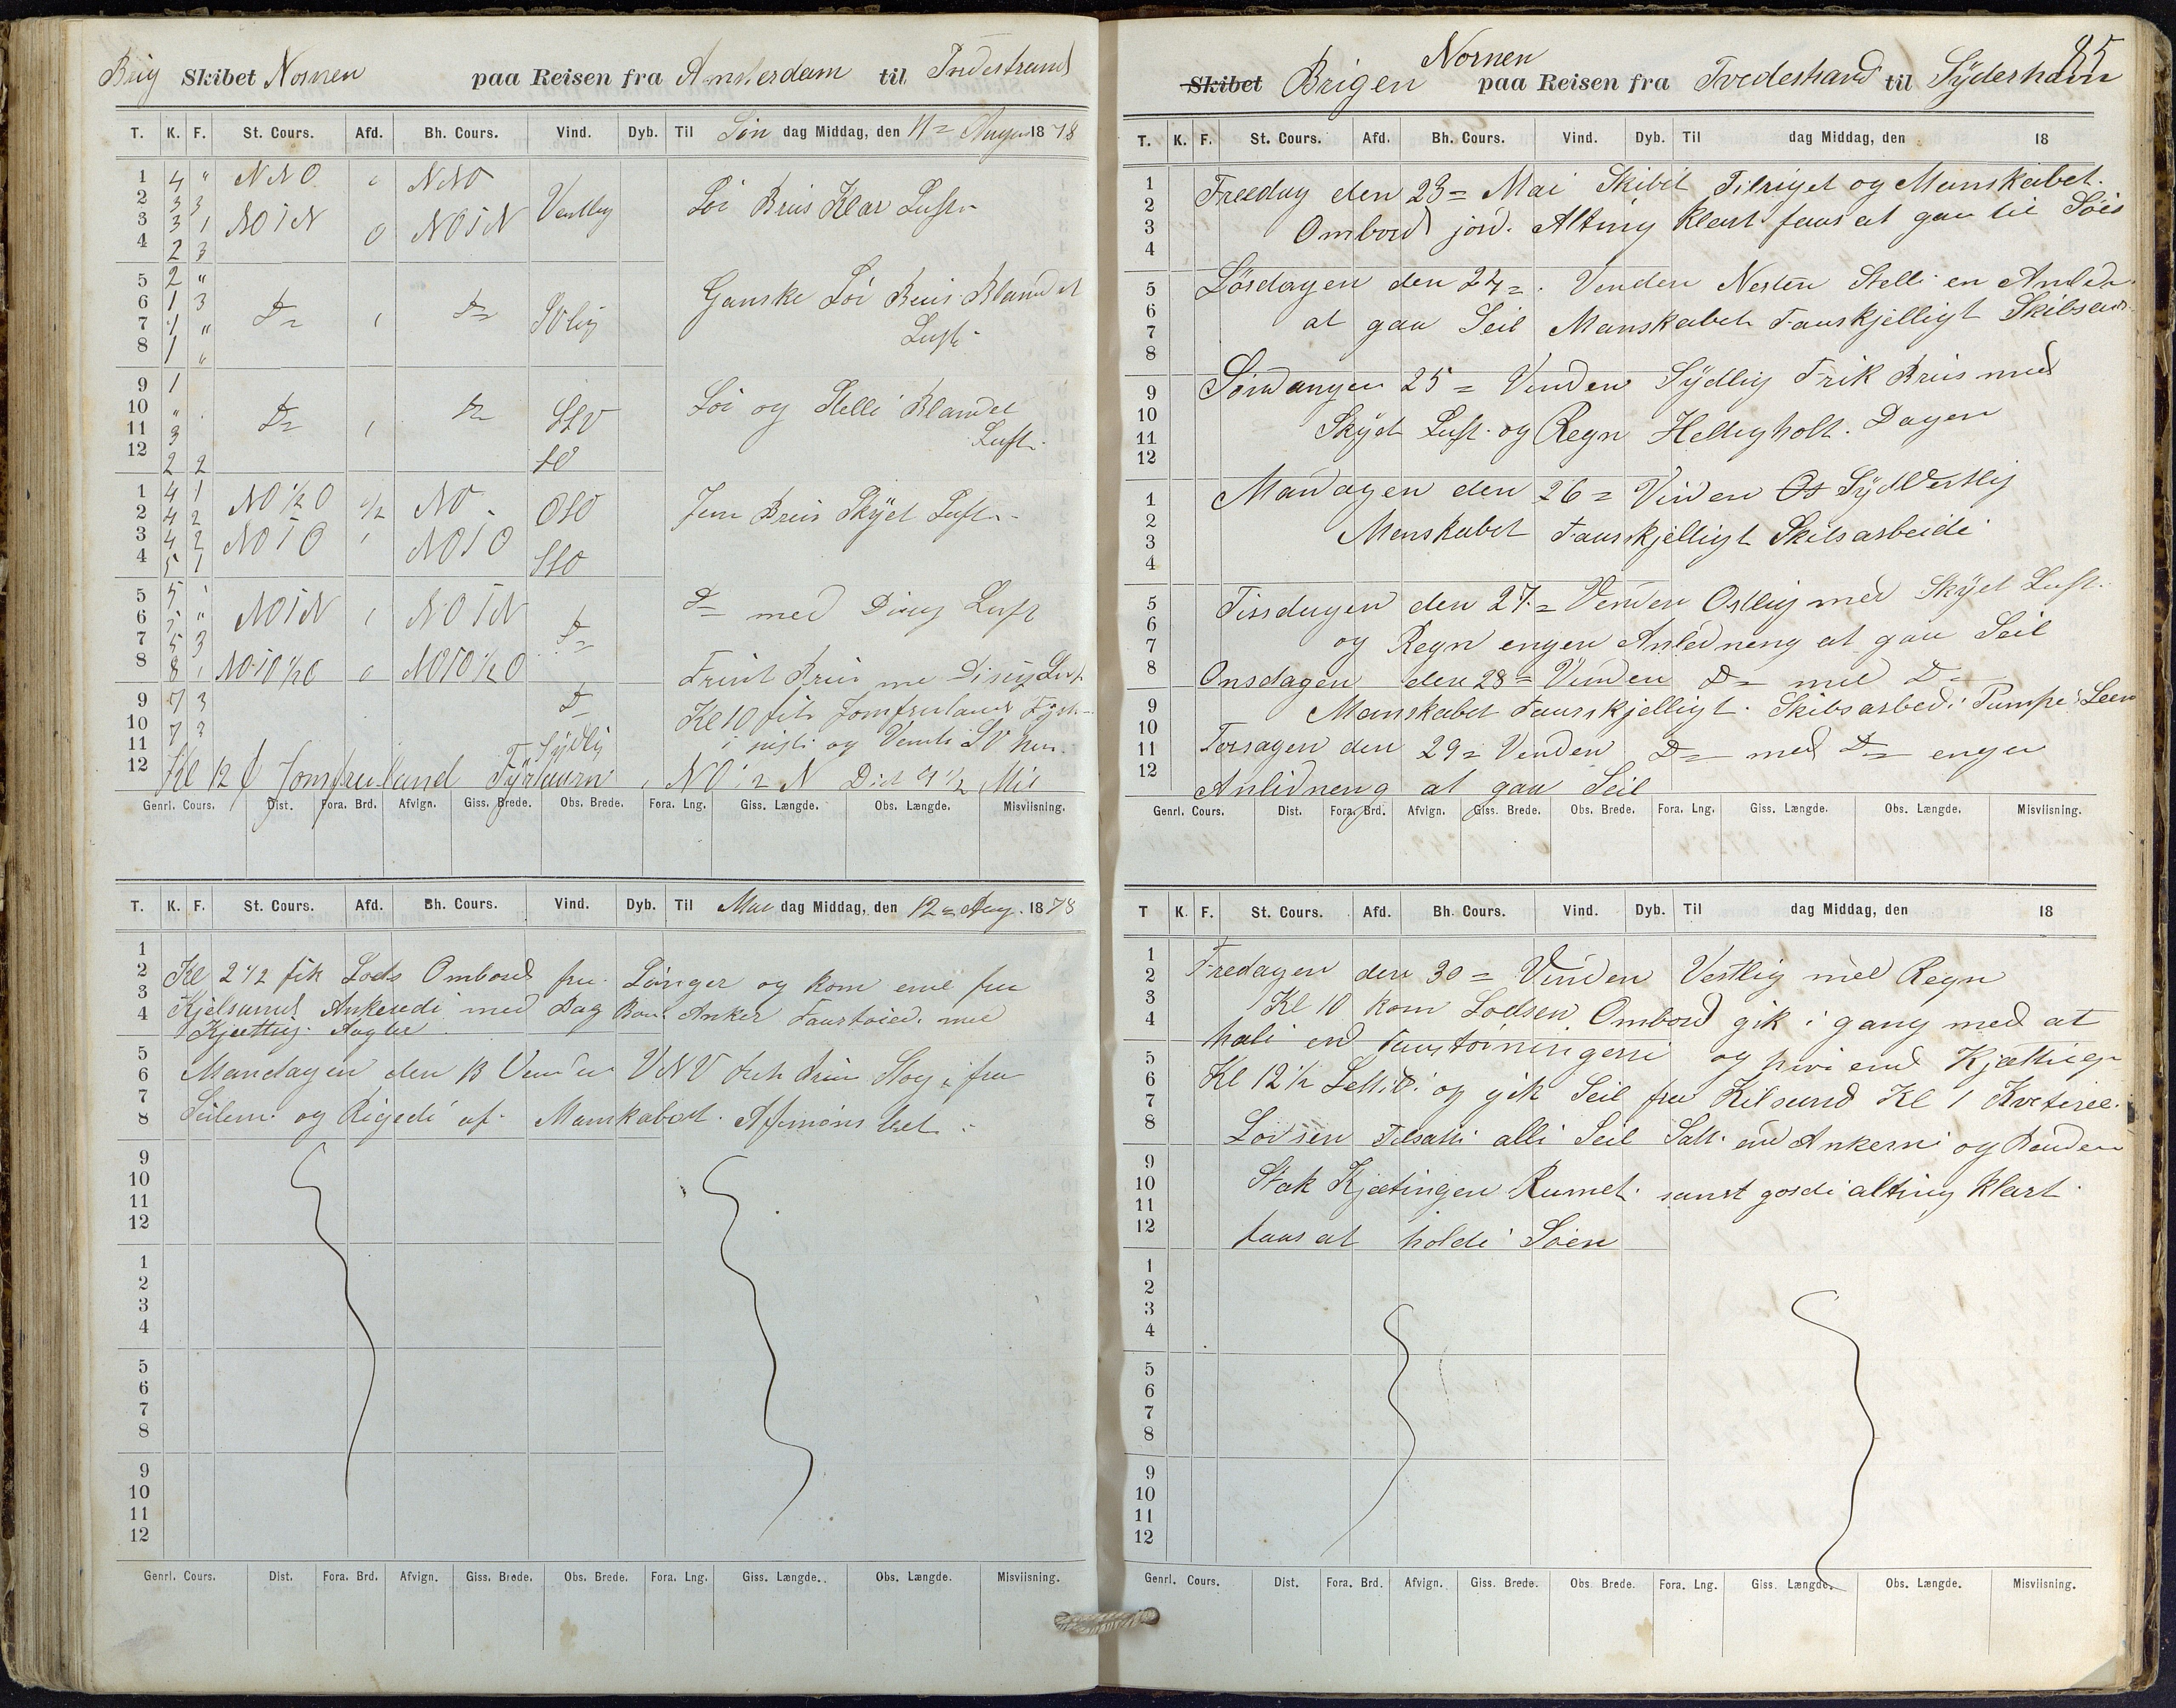 Brig Skibet Nornen paa Reisen fra Amsterdam til Tvedestrand
T. K. F. St. Cours. Afd. Bh. Cours. Vind. Dyb. Til Søn dag Middag, den 11= August 1878
1 4 " NNO 0 NNO
2 3 3 Vestlig Löi Bris Klar Luft
3 3 1 NO i N 0 NO i N
4 2 3
5 2 "
6 1 3 Do Do SVlig Ganske Löi Bris Blandet
7 1 " Luft
8 1 "
9 1
10 " Do Do SSV Löi og Stelle Blandet
11 3 Luft
12 2 2 SO
1 4 1 NO ½ O NO OSO Jevn Bris Skÿet Luft
2 4 2
3 4 2 NO i O NO i O
4 5 1 SSO
5 5 Do med Disig Luft
6 5 " NO i N NO i N Do
7 5 3
8 8 NO i O ½ O 0 NO i O ½ O Frisk Bris me Disig Luft
9 7 3 Do Kl 10 fik Jomfruland Fÿr
10 7 3 i sigte og
11 Sÿdlig
12 Kl 12 Jomfruland Fÿrtaarn NO i N Dist 4½ Mil
Genrl. Cours. Dist. Fora. Brd. Afvign. Giss. Brede. Obs. Brede. Fora. Lng. Giss. Længde. Obs. Længde. Misviisning.
T. K. F. St. Cours. Afd. Bh. Cours. Vind. Dyb. Til Man dag Middag, den 12= Aug. 1878
1
2 Kl 2½ fik Lods Ombord fra Lÿngør og kom ene fra
3 Kjelsund Ankerede med Dag Bou Anker Faurtøiede med
4 Kjætting Agter
5
6 Mandagen den 13 Venden VNV
7
8 Seilene og Rigede af Manskabet Afmønstret
9
10
11
12
1
2
3
4
5
6
7
8
9
10
11
12
Genrl. Cours. Dist. Fora. Brd. Afvign. Giss. Brede. Obs. Brede. Fora. Lng. Giss. Længde. Obs. Længde. Misviisning.
85
Skibet Brigen Nornen paa Reisen fra Tvedestrand til Sÿderhavn
T. K. F. St. Cours. Afd. Bh. Cours. Vind. Dyb. Til dag Middag, den 18
1 Freedag den 23= Mai Skibet Tilriget og Manskabet
2
3 Ombord jord. Alting Klart faar at gaa til Söes
4
5 Lörsdagen den 24= Venden Nesten Stelle en Anled
6 at gaa Seil Manskabet Faurskjelligt Skibsarb
7
8
9 Söndangen 25= Venden Sÿdlig Frik Bris med
10
11 Skÿet Luft og Regn Helligholt Dagen
12
1 Mandagen den 26= Vinden Os SÿdVestlig
2
3 Manskabet Faurskjelligt Skibsarbeide
4
5 Tirsdagen den 27= Venden Ostlig med Skÿet Luft
6
7 og Regn engen Anledneng at gaa Seil
8 Onsdagen den 28= Vinden Do med Do
9 Manskabet Faurskjelligt Skibsarbed Pumpe Leens
10
11 Torsagen den 29= Venden Do med Do engen
12 Anlidneng at gaa Seil
Genrl. Cours. Dist. Fora. Brd. Afvign. Giss. Brede. Obs. Brede. Fora. Lng. Giss. Længde. Obs. Længde. Misviisning.
T K. F. St. Cours. Afd. Bh. Cours. Vind. Dyb. Til dag Middag, den 18
1
2 Fredagen den 30= Vinden Vestlig med Regn
3 Kl 10 kom Lodsen Ombord gik i gang med at
4 hale end Faurtöiningerne og hive end Kjættieg
5
6 Kl 12½ Lettede og gik Seil fra Kilsund Kl 1
7
8 Lodsen Tilsatte alle Seil Satt end Ankerne og
9
10 Stak Kjætingen Rumet samt gorde alting Klart
11
12 faar at holde Söen
1
2
3
4
5
6
7
8
9
10
11
12
Genrl. Cours. Dist. Fora. Brd. Afvign. Giss. Brede. Obs. Brede. Fora. Lng. Giss. Længde. Obs. Længde. Misviisning.